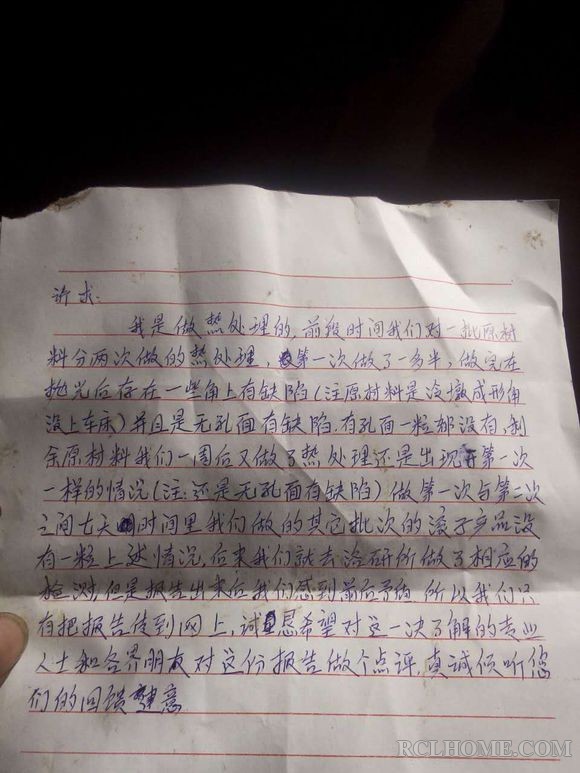 诉求:
我是做热处理的,前段时间我们对一批原材
料分两次做的热处理,第一次做了一多半,做完在
抛光后存在一些角上有缺陷(注原材料是冷墩成形角
没上车床)并且是无孔面有缺陷,有孔面一粒都没有,剩
余原材料我们一周后又做了热处理还是出现第一次
一样的情况(注:还是无孔面有缺陷)做第一次与第二次
之间七天时间里我们做的其它批次的滚子产品没
有一粒上述情况,后来我们就去洛研所做了相应的
检测,但是报告出来后我们感到前后矛盾 所以我们只
有把报告传到网上,诚恳希望对这一决了解的专业
人士和各界朋友对这份报告做个点评,真诚倾听您
们的回馈意
RCLHOME.COM